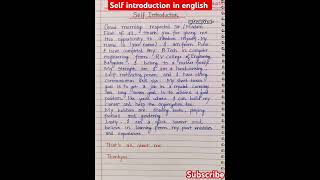 Self introduction in english
Self Introduction
Good morning respected Sir/Madam.
First of all, I thank you for giving me
this opportunity to introduce myself. My
name is (your name). I am from Pune.
I have completed my B.Tech in Computer
engineering from RV college of Engineering
I belong to a nuclear family.
My strength are I am a hard-working,
self motivating person and I have strong
communication skill also. My short term
goal is to get a job in a reputed company
and long term goal is to achieve a good
position like yours where I can build my
career and help the organization too.
My hobbies are reading books, playing
and gardening.
Lastly, I am a quick learner and
believe in learning from my past mistakes
and experiences.
That's all about me.
Thankyou.
Subscribe